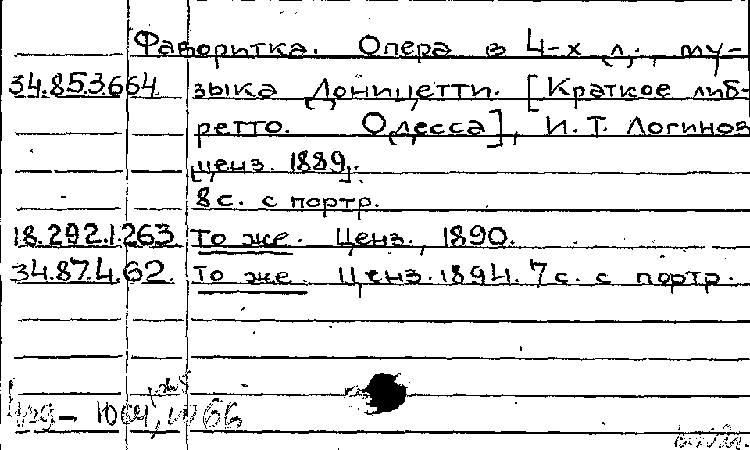 Фаворитка. Опера в 4-х д., му-
34.853.664 зыка Доницетти. [Краткое либ-
ретто. Одесса], И.Т. Логинов
[ценз. 1889].
8 с. с портр.
18.292.1.263 То же. Ценз., 1890.
34.87.4.62. То же. Ценз. 1894. 7 с. с портр.